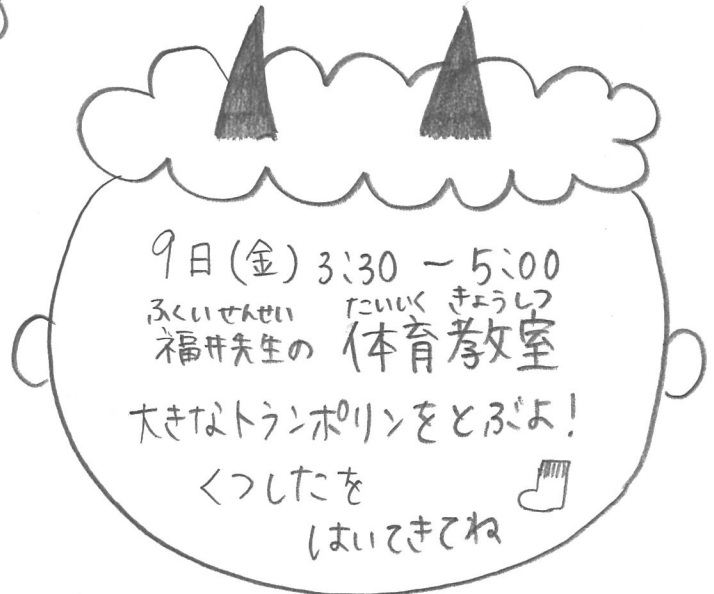 9日(金) 3:30 ~ 5:00
ふくいせんせい たいいく きょうしつ
福井先生の 体育教室
大きなトランポリンをとぶよ!
くつしたを
はいてきてね